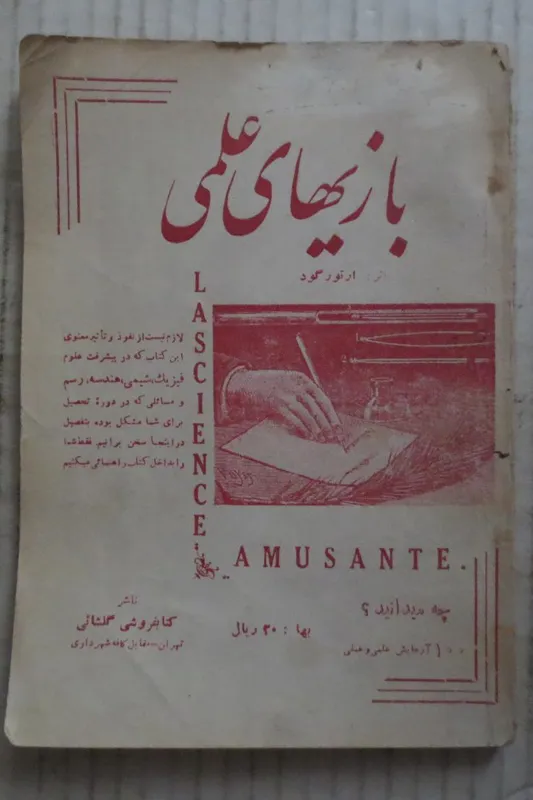 بازیهای علمی
اثر: ارتور گود
LA SCIENCE
AMUSANTE.
لازم نیست از نفوذ و تأثیر معنوی
این کتاب که در پیشرفت علوم
فیزیك، شیمی، هندسه، رسم
و مسائلی که در دورهٔ تحصیل
برای شما مشکل بوده بتفصیل
دراینجا سخن برانیم. فقط شما
را بداخل کتاب راهنمائی میکنیم
چه میدانید ؟
۱۰۰ آزمایش علمی و عملی
بها : ۳۰ ریال
ناشر
کتابفروشی گلشائی
تهران - مقابل کافه شهرداری